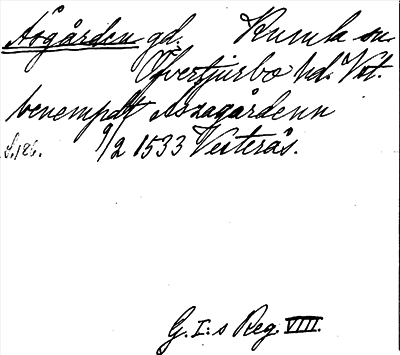 Åsgården gd. Kumla sn.
Öfvertjurbo hd. Vstm.
benempdt Assagårdenn
s. 186. 9/2 1533 Vesterås.
G. I:s Reg. VIII.